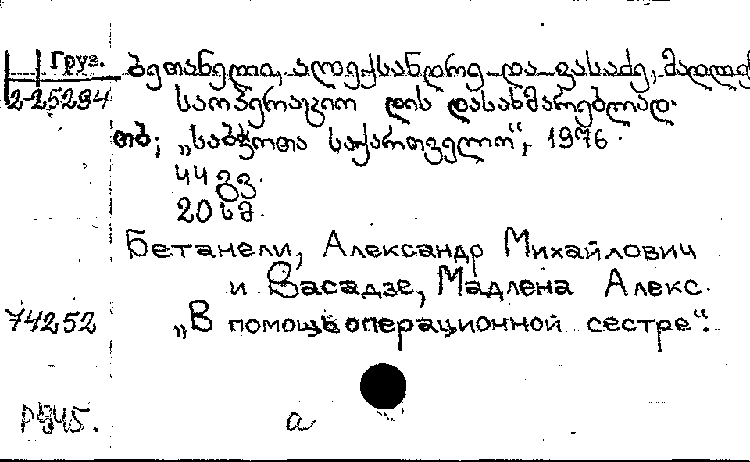 Груз.
ბეთანელი, ალექსანდრე და ვასაძე, მადლენ
2-25294 საოპერაციო დის დასახმარებლად.
თბ; „საბჭოთა საქართველო“, 1976.
44 გვ.
20 სმ.
Бетанели, Александр Михайлович
и Васадзе, Мадлена Алекс.
74252 „В помощь операционной сестре“.
а